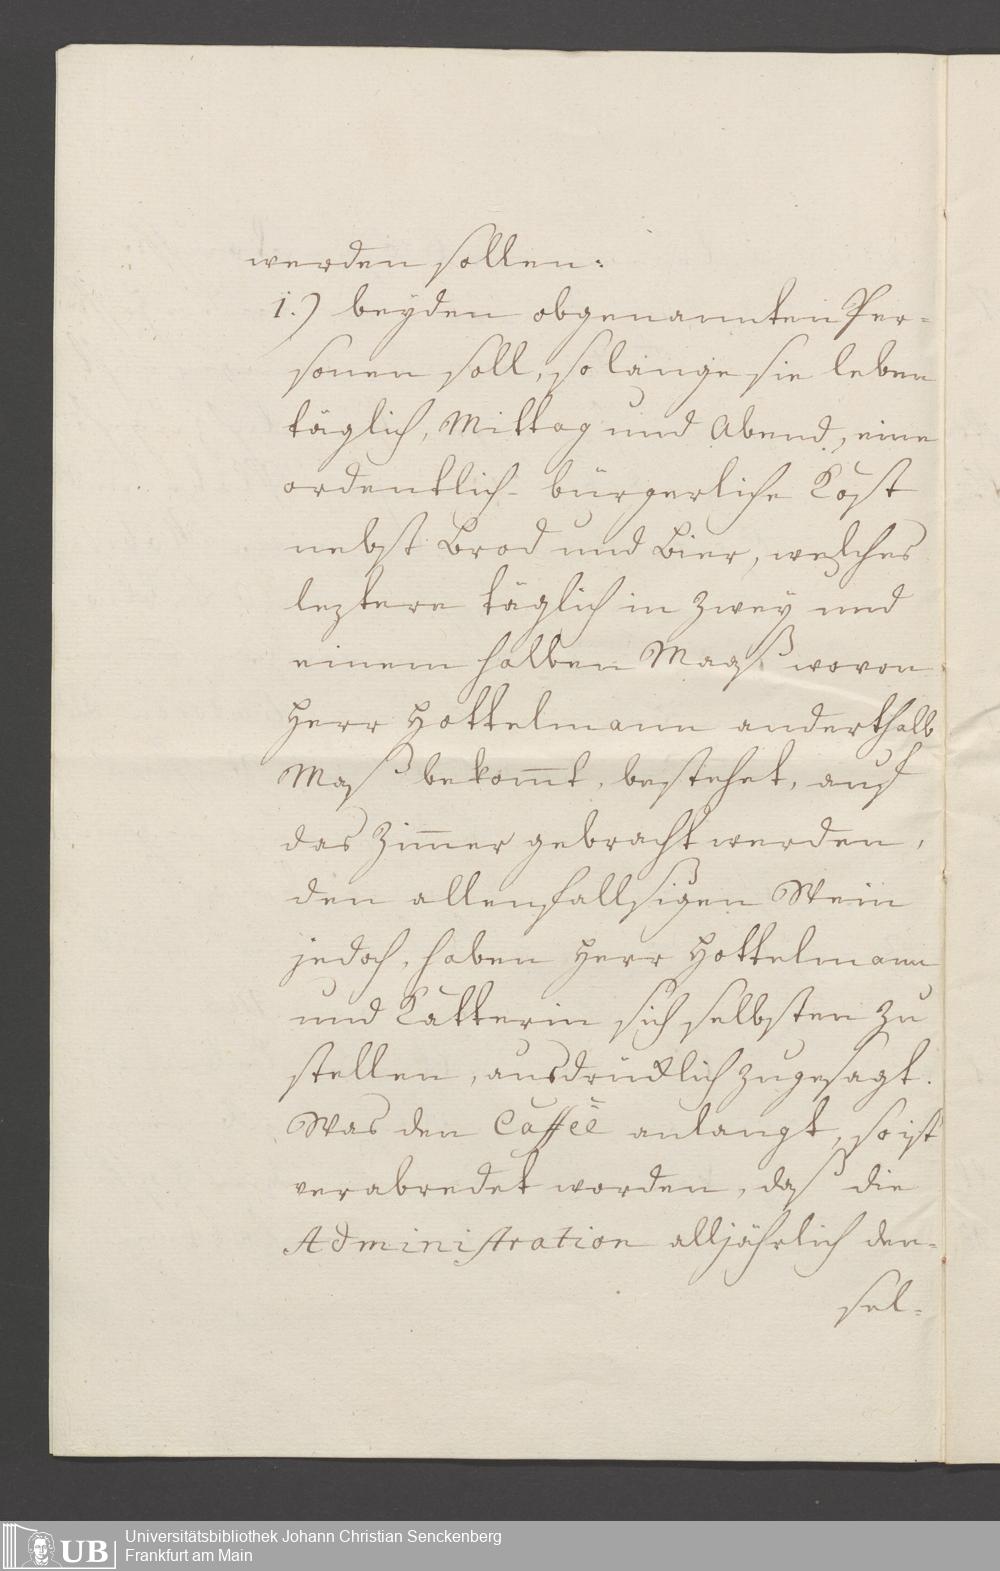 werden sollen:
1.) beyden obgenannten Per-
sonen soll, so lange sie leben
täglich, Mittag und Abend, eine
ordentlich-bürgerliche Kost
nebst Brod und Bier, welches
leztere täglich in zwey und
einem halben Maaß wovon
Herr Hottelmann anderthalb
Maß bekom̅t, bestehet, auf
das Zim̅er gebracht werden,
den allenfallsigen Wein
jedoch, haben Herr Hottelmann
und Katterin sich selbsten zu
stellen, ausdrücklich zugesagt.
Was den Caffee anlangt, so ist
verabredet worden, daß die
Administration alljährlich den-
sel-
UB
Universitätsbibliothek Johann Christian Senckenberg
Frankfurt am Main